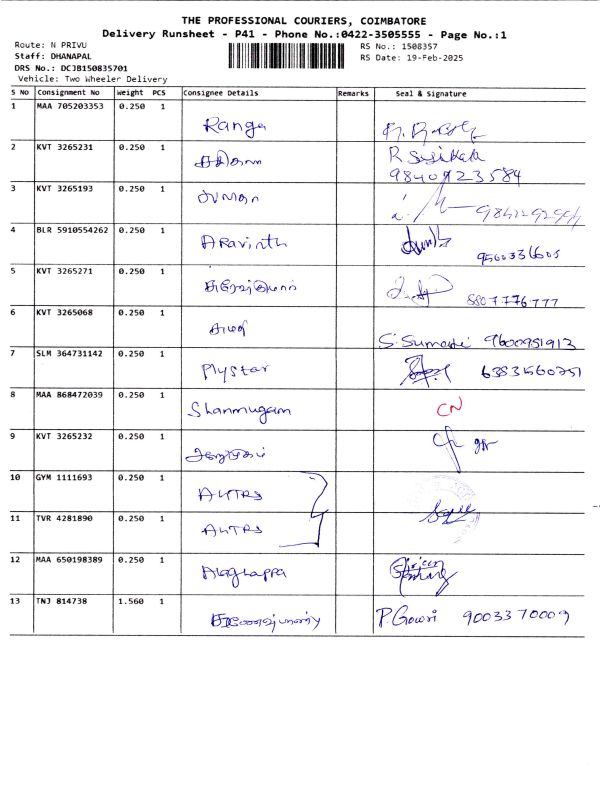 THE PROFESSIONAL COURIERS, COIMBATORE
Delivery Runsheet - P41 - Phone No.:0422-3505555 - Page No.:1
Route: N PRIVU
RS No.: 1508357
Staff: DHANAPAL
RS Date: 19-Feb-2025
DRS No.: DCJB150835701
Vehicle: Two Wheeler Delivery
S No Consignment No Weight PCS Consignee Details Remarks Seal & Signature
1 MAA 705203353 0.250 1 Ranga
2 KVT 3265231 0.250 1 சசிகலா R Sasikala
9840923584
3 KVT 3265193 0.250 1
4 BLR 5910554262 0.250 1 Aravinth 9500336605
5 KVT 3265271 0.250 1 8807776777
6 KVT 3265068 0.250 1 சுமதி S. Sumathi 9600951913
7 SLM 364731142 0.250 1 Plystar 6383560751
8 MAA 868472039 0.250 1 Shanmugam CN
9 KVT 3265232 0.250 1 ஆறுமுகம்
10 GYM 1111693 0.250 1
11 TVR 4281890 0.250 1
12 MAA 650198389 0.250 1 Alaghappa
13 TNJ 814738 1.560 1 P. Gowri 9003370009